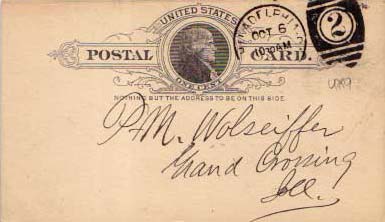 UNITED STATES
POSTAL CARD.
ONE CENT
NOTHING BUT THE ADDRESS TO BE ON THIS SIDE.
OCT 6
1030AM
2
P.M. Wolseiffer
Grand Crossing
Ill.